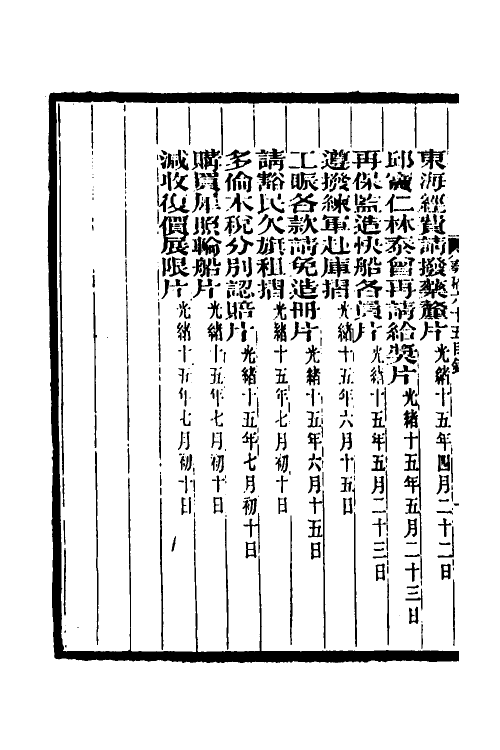 東海經費請撥藥釐片光緒十五年四月二十二日
邱寶仁林泰曾再請給獎片光緒十五年五月二十三日
再保監造快船各員片光緒十五年五月二十三日
遵撥練軍赴庫摺光緒十五年六月十五日
工賑各款請免造冊片光緒十五年六月十五日
請豁民欠旗租摺光緒十五年七月初十日
多倫木稅分別認賠片光緒十五年七月初十日
購買犀照輪船片光緒十五年七月初十日
減收復價展限片光緒十五年七月初十日